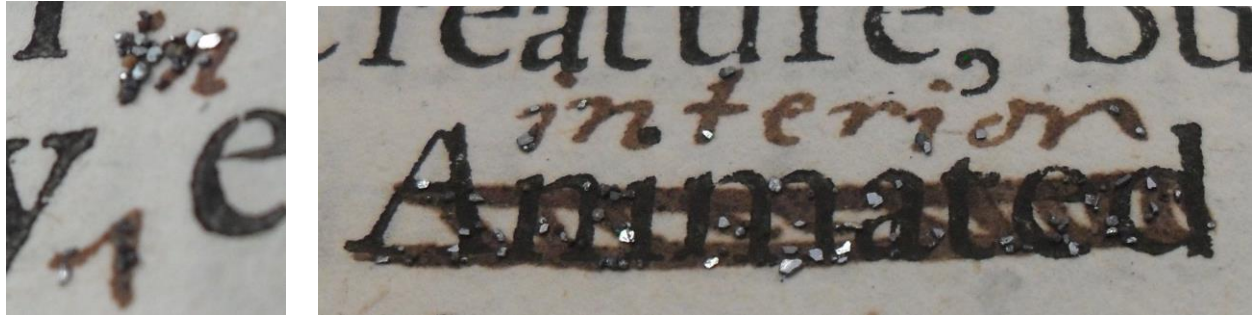 y e
creature, Bu
interior
Animated